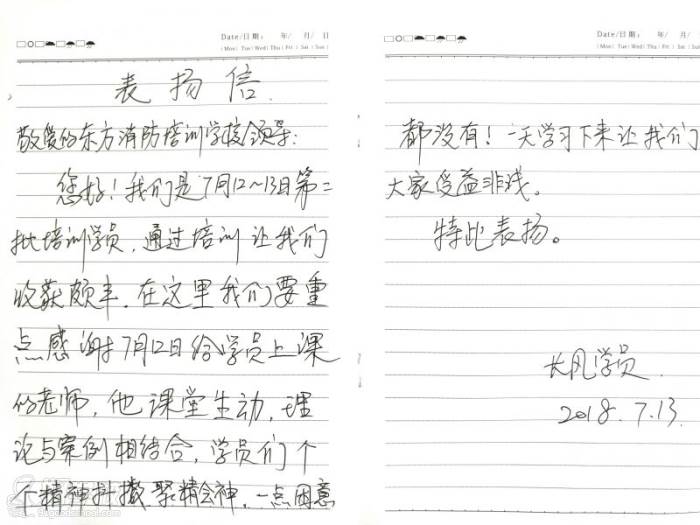 Date/日期: 年/ 月/ 日
(Mon) Tue (Wed) Thu (Fri) Sat (Sun
表扬信.
敬爱的东方消防培训学校领导:
您好!我们是7月12~13日第二
批培训学员,通过培训让我们
收获颇丰,在这里我们要重
点感谢7月12日给学员上课
的老师,他课堂生动,理
论与案例相结合,学员们个
个精神抖擞聚精会神,一点困意
Date/日期: 年/ 月/
(Mon) Tue (Wed) Thu (Fri) Sat (
都没有!一天学习下来让我们
大家受益非浅。
特此表扬。
长风学员.
2018.7.13